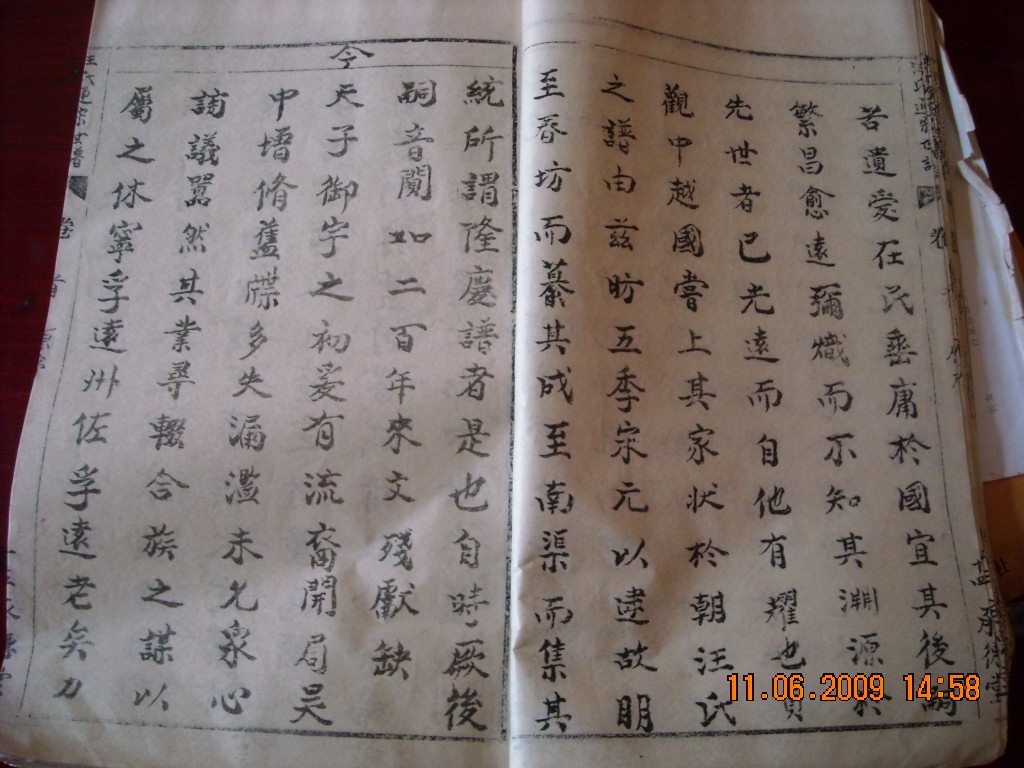 若遺愛在民垂庸於國宜其後嗣
繁昌愈遠彌熾而不知其淵源於
先世者已光遠而自他有耀也貢
觀中越國嘗上其家狀於朝汪氏
之譜由茲昉五季宋元以逮故明
至春坊而纂其成至南渠而集其
統所謂隆慶譜者是也自時厥後
嗣音闃如二百年來文殘獻缺
今
天子御宇之初爰有流裔開局吳
中增脩舊牒多失漏濫未允衆心
謫議囂然其業尋輟合族之謀以
屬之休寧孚遠州佐孚遠老矣力
卷
11.06.2009 14:58